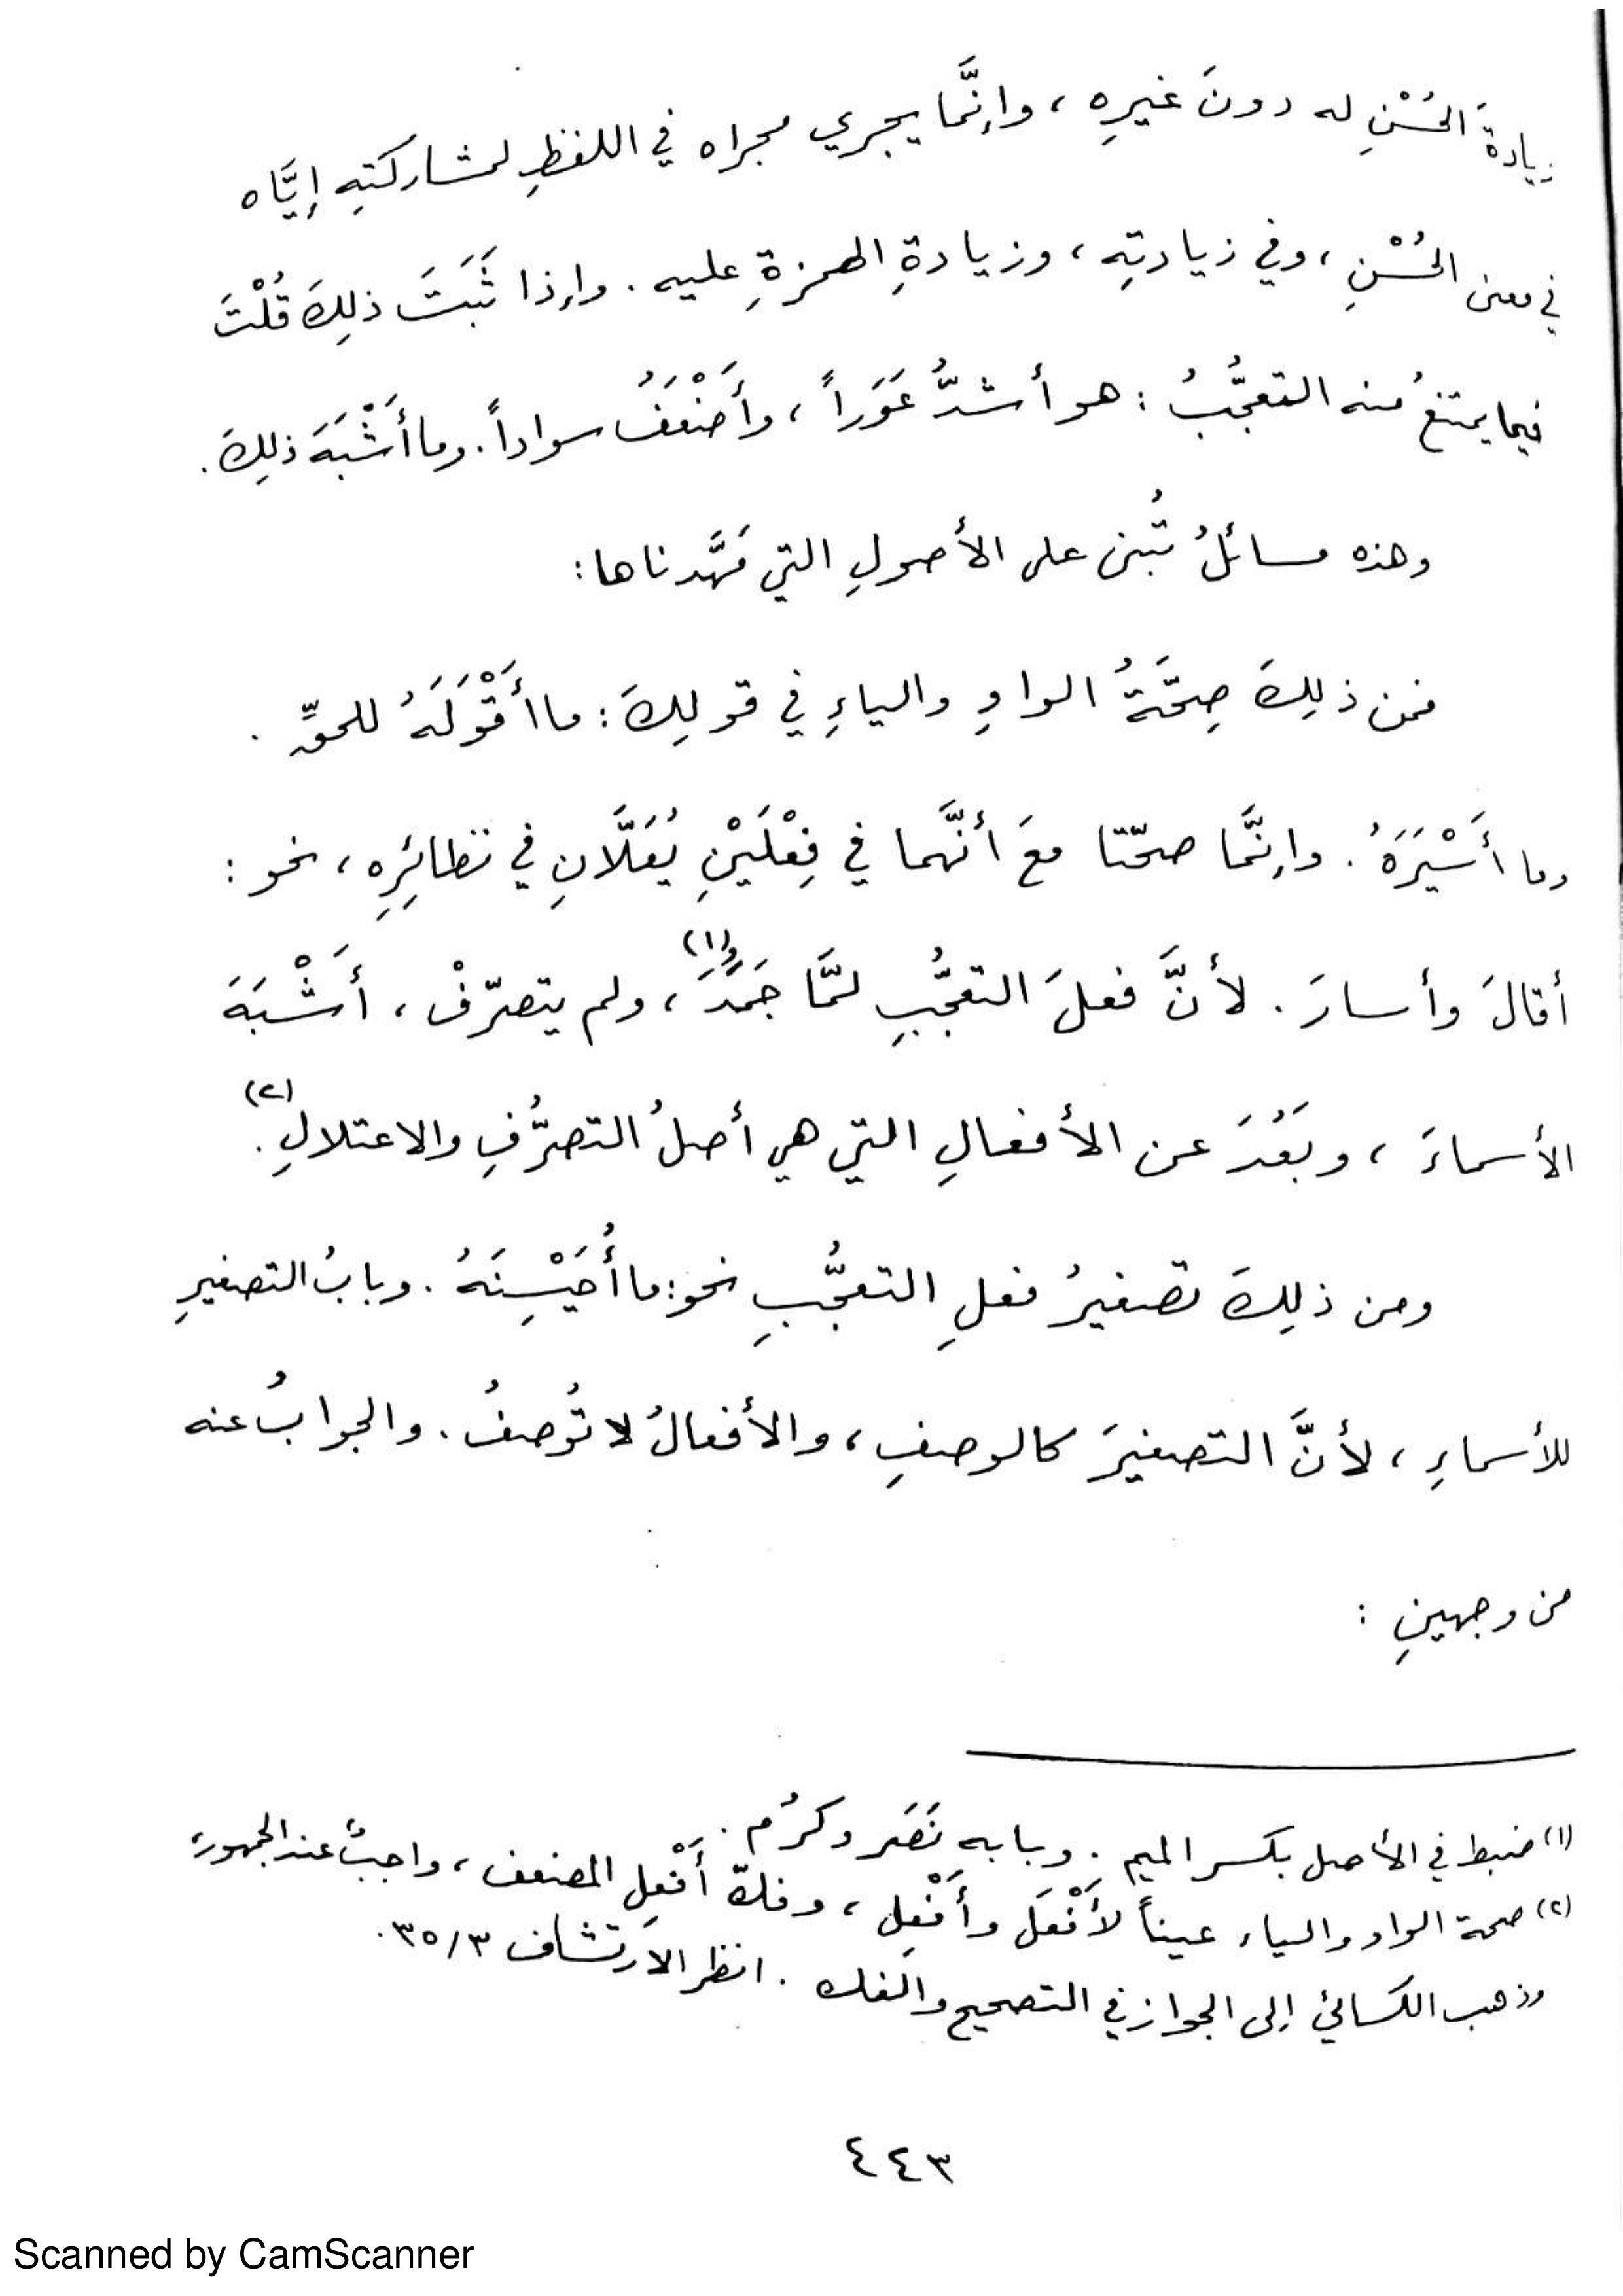 زيادةَ الحُسْنِ له دونَ غيرِهِ ، وإنَّما يجري مجراه في اللفظِ لمشاركتِهِ إيَّاه
في معنى الحُسْنِ ، وفي زيادتِهِ ، وزيادةِ الهمزةِ عليه . وإذا ثَبَتَ ذلِكَ قُلْتَ
فيما يمتنعُ منه التعجُّبُ : هو أشدُّ عَوَراً ، وأَضْعَفُ سواداً . وما أَشْبَهَ ذلِكَ .
وهذه مسائلُ تُبنى على الأصولِ التي مَهَّدناها :
فمن ذلِكَ صِحَّةُ الواوِ والياءِ في قولِكَ : ما أَقْوَلَهُ للحقِّ .
وما أَسْيَرَهُ . وإنَّما صحّتا معَ أنَّهما في فِعْلَيْنِ يُعَلَّانِ في نظائِرِهِ ، نحو :
أقالَ وأسارَ . لأنَّ فعلَ التعجُّبِ لمَّا جَمَُدَ (١) ، ولم يتصرّفْ ، أَشْبَهَ
الأسماءَ ، وبَعُدَ عن الأفعالِ التي هي أصلُ التصرُّفِ والاعتلالِ (٢) .
ومن ذلِكَ تصغيرُ فعلِ التعجُّبِ نحو : ما أُحَيْسِنَهُ . وبابُ التصغيرِ
للأسماءِ ، لأنَّ التصغيرَ كالوصفِ ، والأفعالُ لا تُوصفُ . والجوابُ عنه
من وجهينِ :
(١) ضبط في الأصل بكسر الميم . وبابه نَصَر وكرُم .
(٢) صحة الواو والياء عيناً لأَفْعَل وأَفْعِل ، وفكّ أَفْعِل المضعف ، واجبٌ عند الجمهور ،
وذهب الكسائيّ إلى الجواز في التصحيح والفك . انظر الارتشاف ٣/٣٥ .
٤٤٣
Scanned by CamScanner